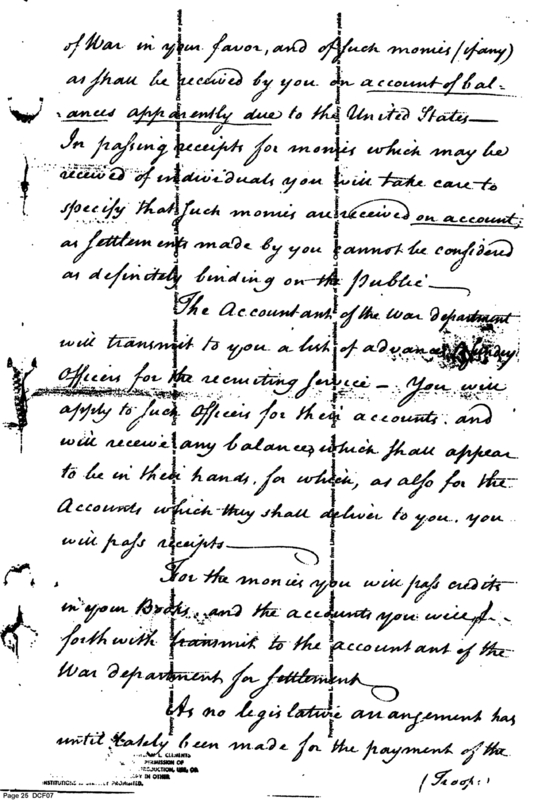 of War in your favor, and of such monies (if any)
as shall be received by you on account of bal-
ances apparently due to the United States—
In passing receipts for monies which may be
received of individuals you will take care to
specify that such monies are received on account;
as settlements made by you cannot be considered
as definitely binding on the public—
The Accountant of the War department
will transmit to you a list of advances
Officers for the recruiting service — You will
apply to such officers for their accounts. and
will receive any balances, which shall appear
to be in their hands, for which, as also for the
Accounts which they shall deliver to you. you
will pass receipts—
For the monies you will pass credits
in your Books, and the accounts you will
forthwith transmit to the accountant of the
War department for settlement
As no legislative arrangement has
until lately been made for the payment of the
(Troops)
CLEMENTS
PERMISSION OF
IN OTHER
PROHIBITED.
Page 25 DCF07